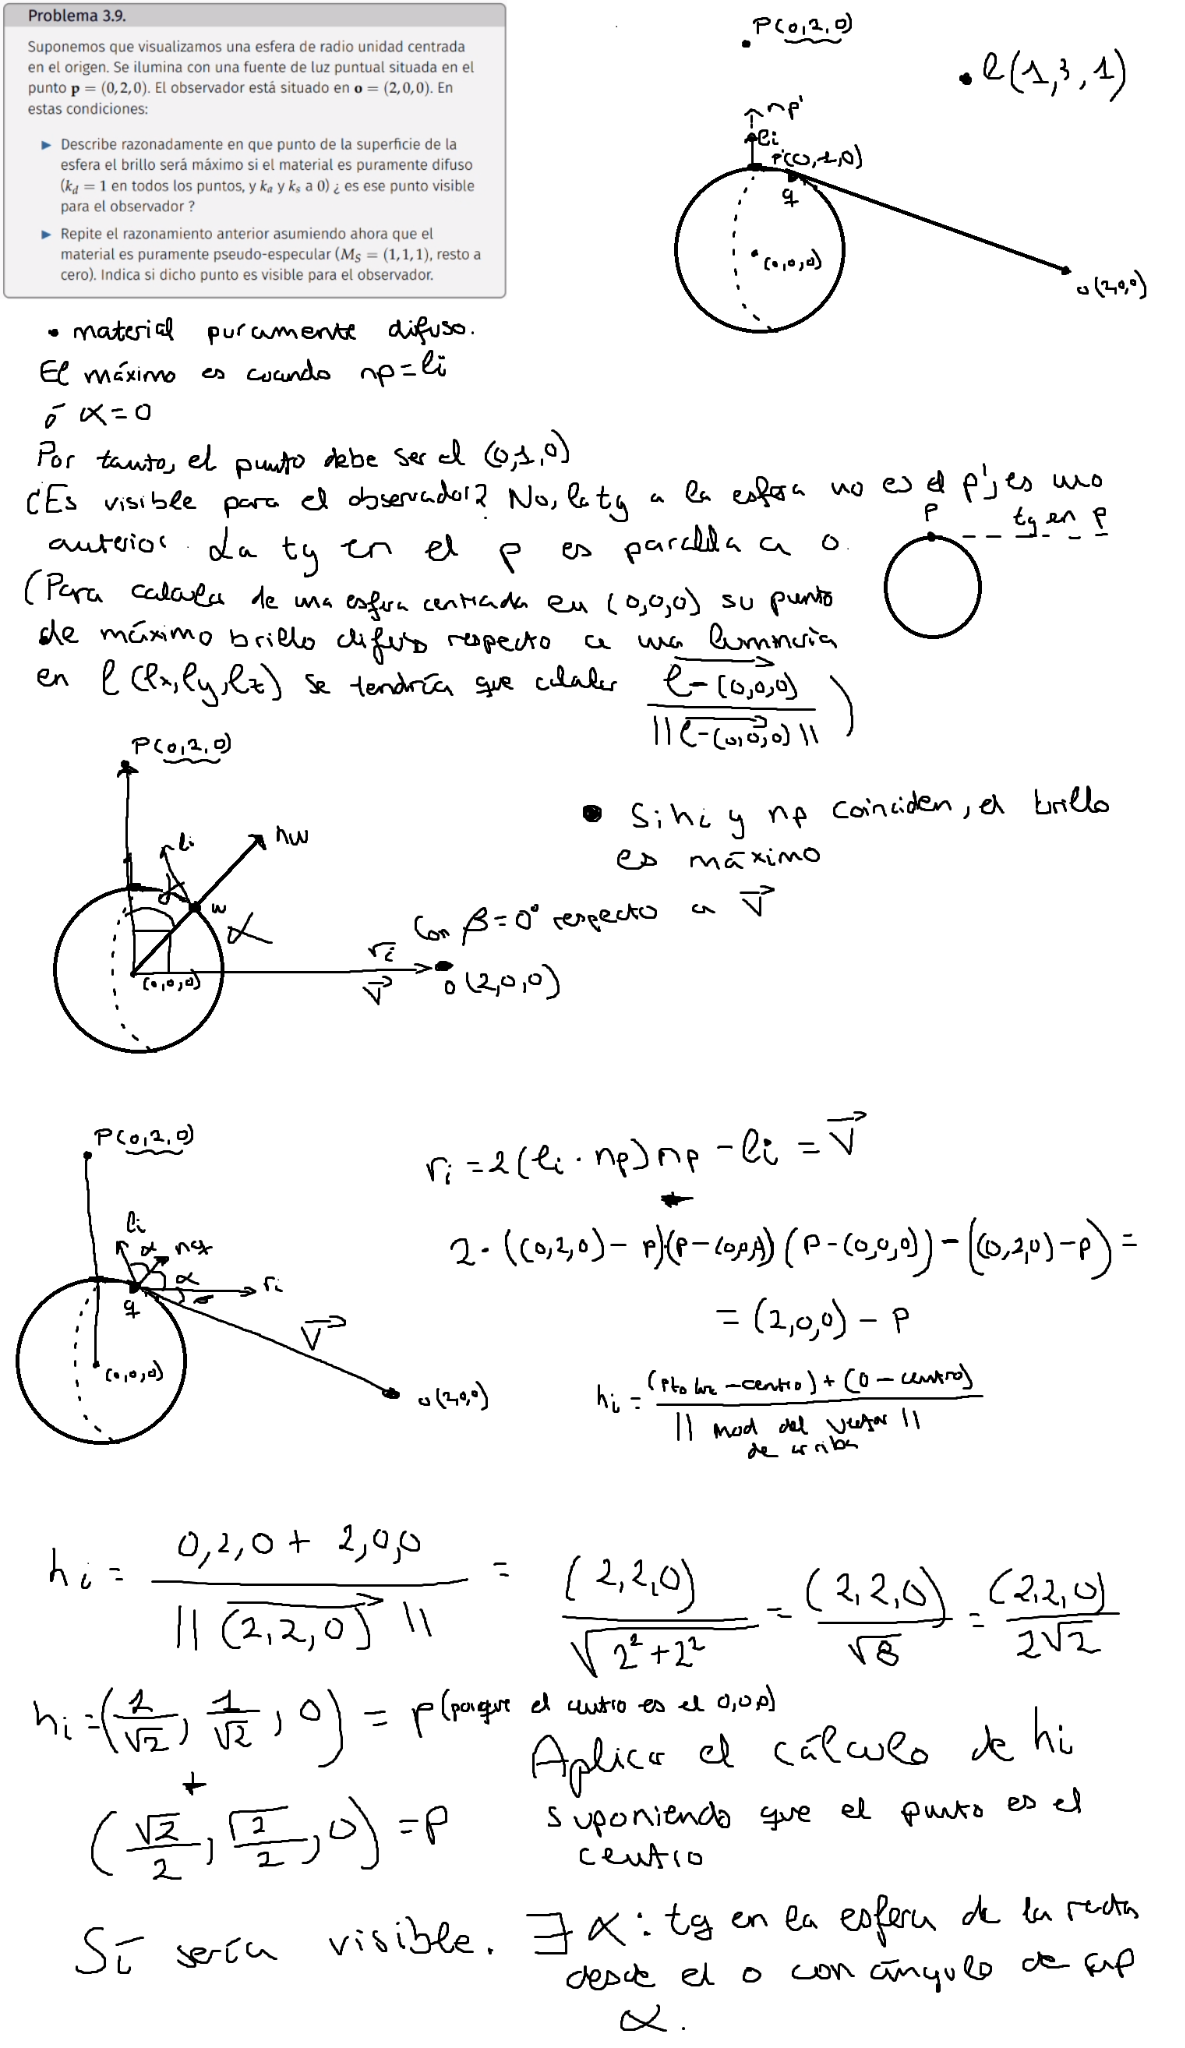 Problema 3.9.
Suponemos que visualizamos una esfera de radio unidad centrada
en el origen. Se ilumina con una fuente de luz puntual situada en el
punto p = (0, 2, 0). El observador está situado en o = (2, 0, 0). En
estas condiciones:
▶ Describe razonadamente en que punto de la superficie de la
esfera el brillo será máximo si el material es puramente difuso
(k_d = 1 en todos los puntos, y k_a y k_s a 0) ¿ es ese punto visible
para el observador ?
▶ Repite el razonamiento anterior asumiendo ahora que el
material es puramente pseudo-especular (M_S = (1, 1, 1), resto a
cero). Indica si dicho punto es visible para el observador.
P(0,2,0)
l(1,3,1)
np'
li
P'(0,1,0)
q
(0,0,0)
o(2,0,0)
• material puramente difuso.
El máximo es cuando np=li
ó α=0
Por tanto, el punto debe ser el (0,1,0)
¿Es visible para el observador? No, la tg a la esfera no es el p', es uno
anterior. La tg en el p es paralela a o.
P
tg en p
(Para calcular de una esfera centrada en (0,0,0) su punto
de máximo brillo difuso respecto a una luminaria
en l(lx,ly,lz) se tendría que calcular
l-(0,0,0)
||l-(0,0,0)||
)
P(0,2,0)
li
nw
α
w
α
(0,0,0)
ri
V
o(2,0,0)
• Si hi y np coinciden, el brillo
es máximo
Con β=0° respecto a V
P(0,2,0)
li
α
nq
α
ri
q
V
(0,0,0)
o(2,0,0)
ri = 2(li · np)np - li = V
2·((0,2,0)-p)·(p-(0,0,0))(p-(0,0,0))-((0,2,0)-p) =
= (2,0,0) - p
hi = (pto luz - centro) + (o - centro)
|| mod del vector ||
de arriba
hi = 0,2,0 + 2,0,0 = (2,2,0) = (2,2,0) = (2,2,0)
||(2,2,0)|| √2²+2² √8 2√2
hi=(1/√2, 1/√2, 0) = p (porque el centro es el 0,0,0)
(√2/2, √2/2, 0) = p
Aplicar el cálculo de hi
suponiendo que el punto es el
centro
Sí sería visible. ∃ α: tg en la esfera de la recta
desde el o con ángulo de sup
α.